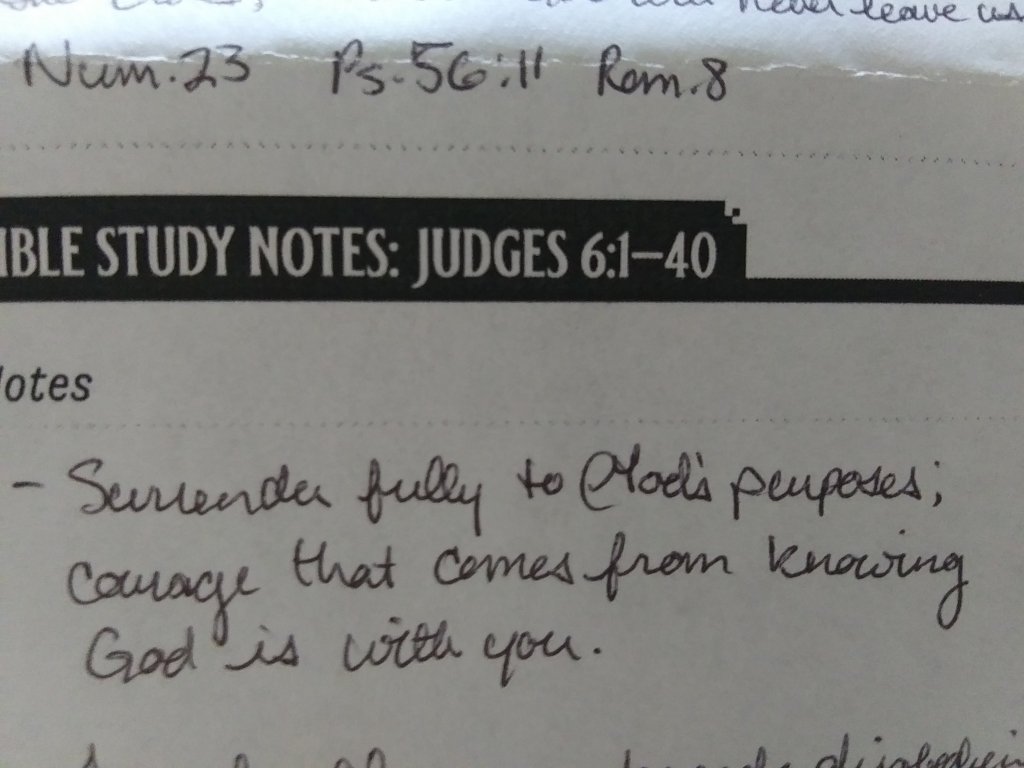 never leave us
Num.23 Ps.56:11 Rom.8
IBLE STUDY NOTES: JUDGES 6:1–40
otes
- Surrender fully to God's purposes;
courage that comes from knowing
God is with you.